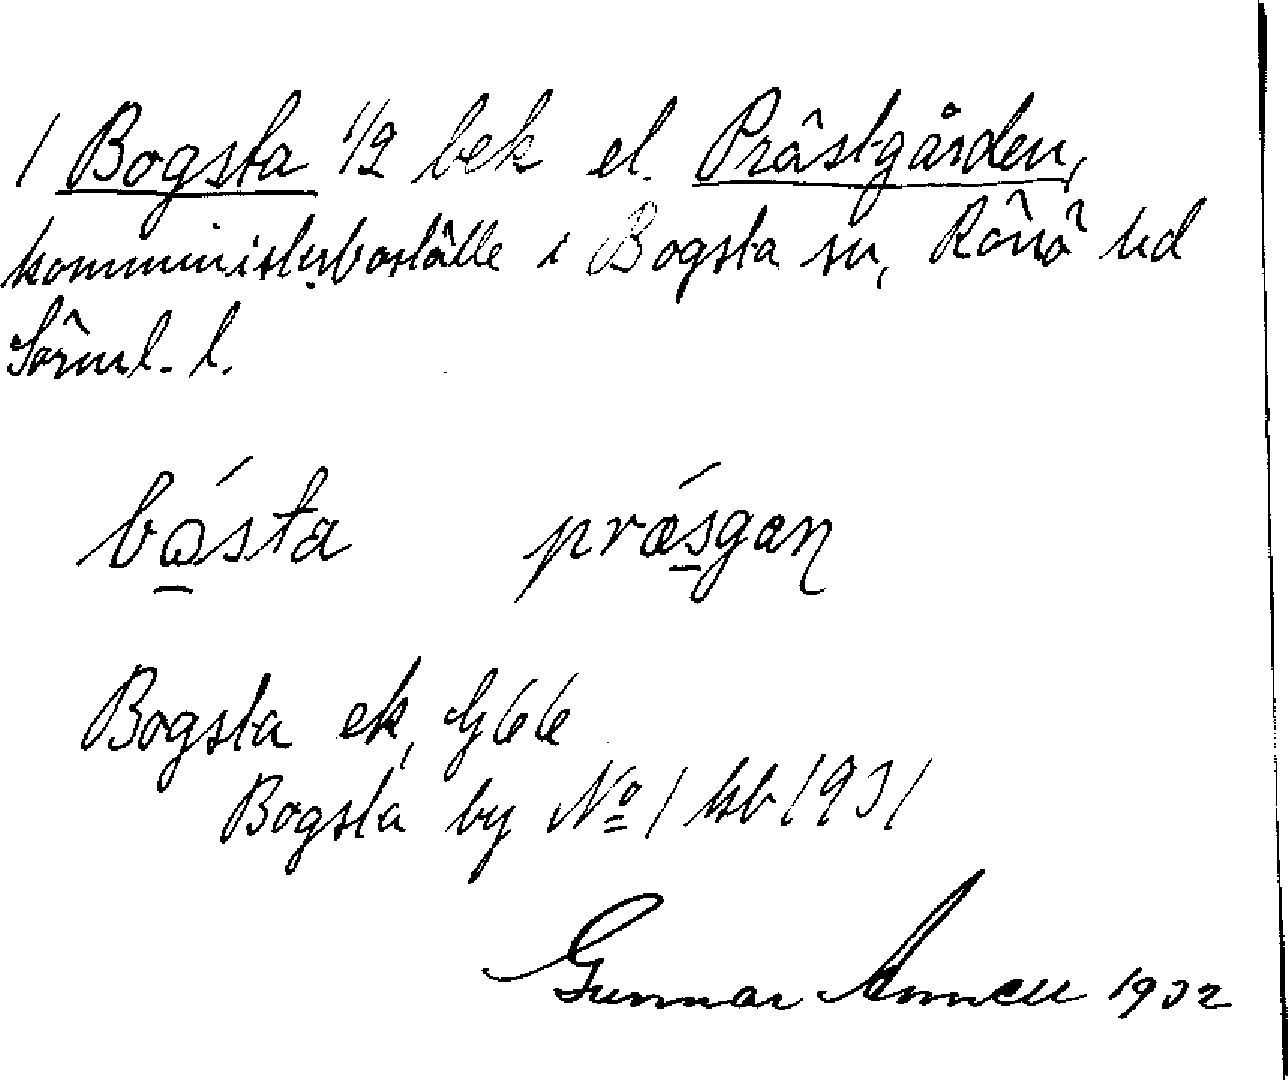 1 Bogsta 1/2 bek el. Prästgården,
kommunistersboställe i Bogsta sn, Rönö hd
Sörml. l.
bǫ́sta præ̂́sgan
Bogsta ek, G66
Bogsta by № 1 hsb 1931
Gunnar Annell 1932